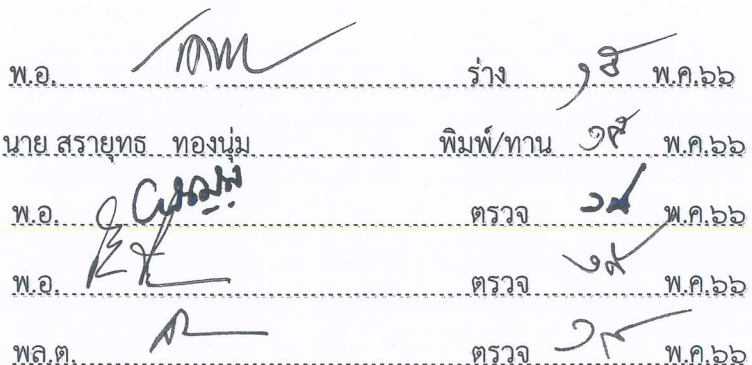 พ.อ. ร่าง พ.ค.๖๖
นาย สรายุทธ ทองนุ่ม พิมพ์/ทาน ๑๙ พ.ค.๖๖
พ.อ. ตรวจ ๑๙ พ.ค.๖๖
พ.อ. ตรวจ ๑๙ พ.ค.๖๖
พล.ต. ตรวจ ๑๙ พ.ค.๖๖